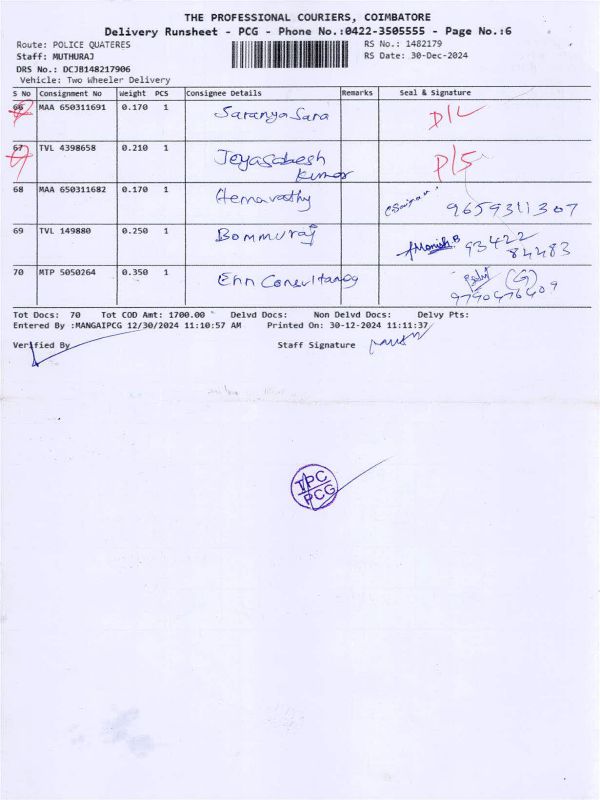 THE PROFESSIONAL COURIERS, COIMBATORE
Delivery Runsheet - PCG - Phone No.:0422-3505555 - Page No.:6
Route: POLICE QUATERES
RS No.: 1482179
Staff: MUTHURAJ
RS Date: 30-Dec-2024
DRS No.: DCJB148217906
Vehicle: Two Wheeler Delivery
S No Consignment No Weight PCS Consignee Details Remarks Seal & Signature
66 MAA 650311691 0.170 1 Saranya Sara D/L
67 TVL 4398658 0.210 1 Jeyasabesh Kumar P/S
68 MAA 650311682 0.170 1 Hemavathy 9659311307
69 TVL 149880 0.250 1 Bommuraj Monish.B 93422 84483
70 MTP 5050264 0.350 1 Ehn Consultancy 9790476409
Tot Docs: 70 Tot COD Amt: 1700.00 Delvd Docs: Non Delvd Docs: Delvy Pts:
Entered By :MANGAIPCG 12/30/2024 11:10:57 AM Printed On: 30-12-2024 11:11:37
Verified By Staff Signature
TPC
PCG